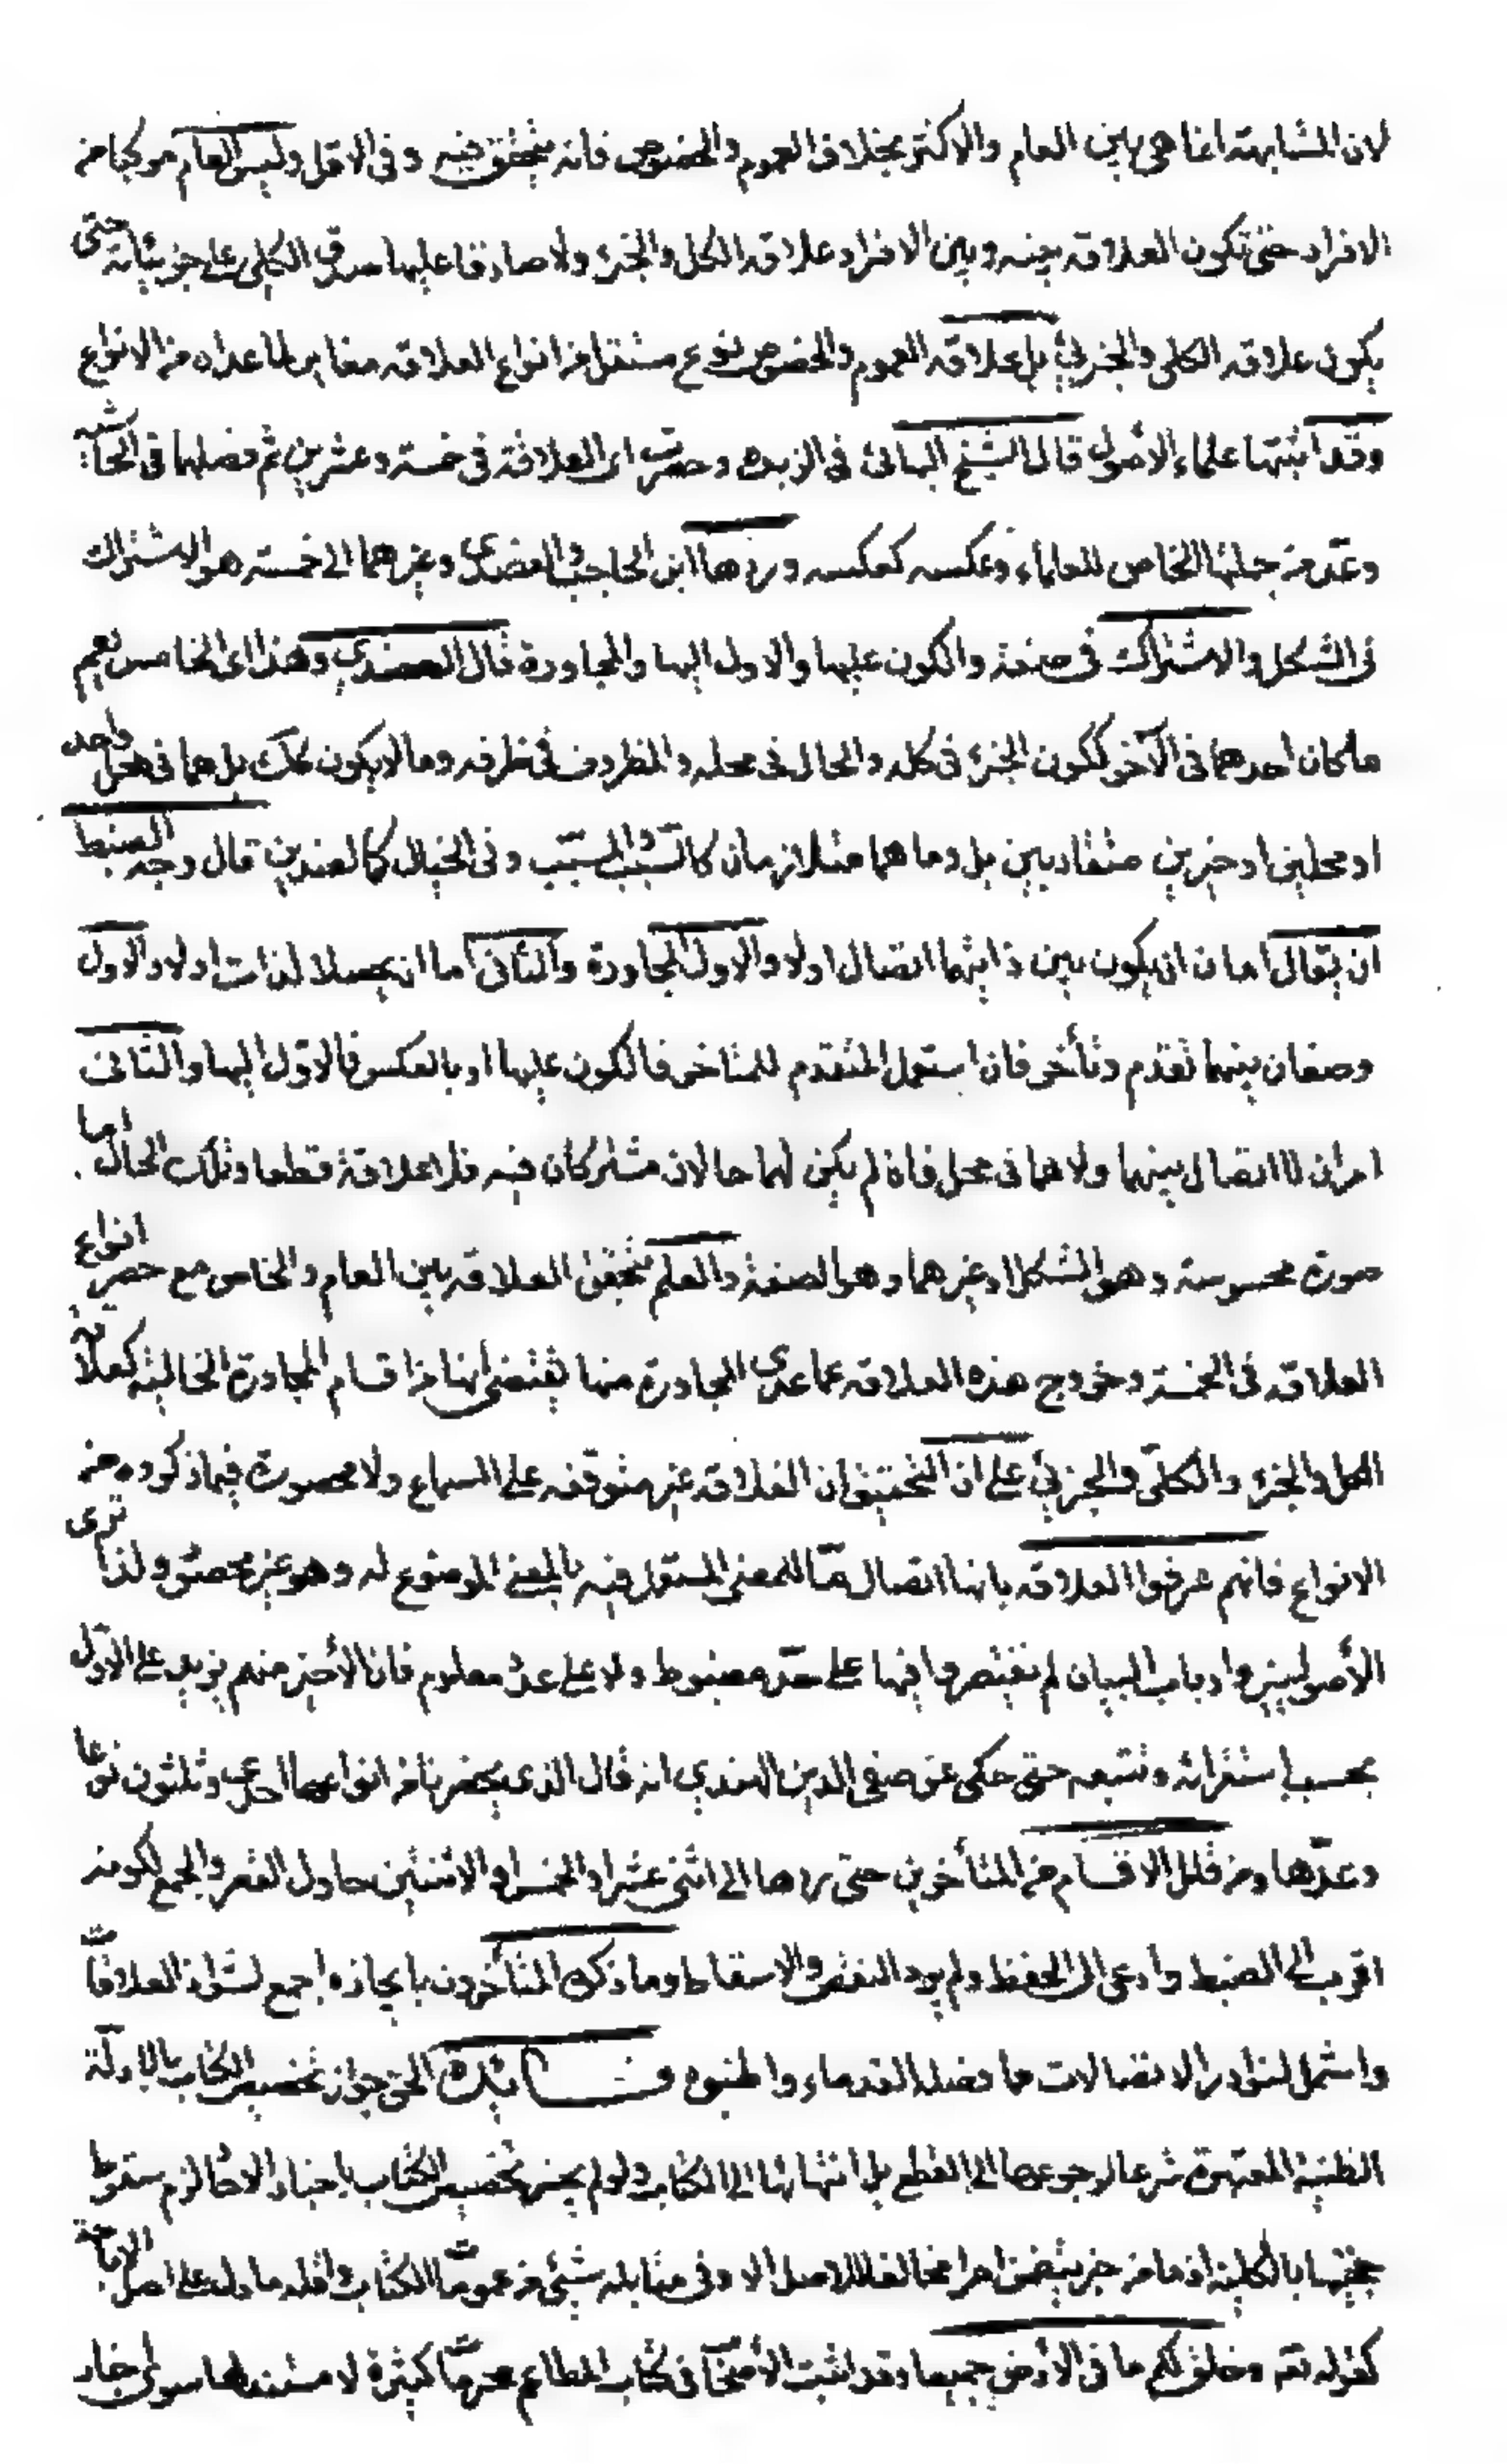 لان المشابهة انما هي بين العام والاكثر بخلاف العموم والخصوص فانه يتحقق فيه وفي الاقل وليس العام مركبا من
الافراد حتى تكون العلاقة بينه وبين الافراد علاقة الكل والجزء ولا صادقا عليها صدق الكلي على جزئياته حتى
يكون علاقة الكلي والجزئي بل علاقة العموم والخصوص نوع مستقل من انواع العلاقة مغاير لما عداه من الانواع
وقد اثبتها علماء الأصول قال الشيخ البهائي في الزبدة وحصرت اي العلاقة في خمسة وعشرين ثم فصلها في الحاشية
وعد من جملتها الخاص للعام وعكسه كعكسه وردها ابن الحاجب والعضدي وغيرهما الى خمسة هو الاشتراك
في الشكل والاشتراك في صفة والكون عليها والاول اليها والمجاورة قال العضدي وهذا اي الخامس تعم
ما كان احدهما في الآخر ككون الجزء في كله والحال في محله والمظروف في ظرفه وما لا يكون كك بل هما في محل واحد
او محلين او حيزين متقاربين بل وما هما متلازمان كالسبب والمسبب وفي الخيال كالضدين قال وجه الضبط
ان يقال اما ان يكون بين ذاتيهما اتصال اولا والاول المجاورة والثاني اما ان يحصلا لذات اولا والاول
وصفان بينهما تقدم وتأخر فان استعمل المتقدم للمتاخر فالكون عليها او بالعكس فالاول اليها والثاني
امران لا اتصال بينهما ولا هما في محل فان لم يكن لهما حالان مشتركان فيه فلا علاقة قطعا وتلك الحال اما
صورة محسوسة وهو الشكل او غيرهما وهو الصفة والعلم بتحقق العلاقة بين العام والخاص مع حصر انواع
العلاقة في الخمسة وخروج هذه العلاقة عما عدى المجاورة منها يقتضي انها من اقسام المجاورة الخالية كعلاقة
الكل والجزء والكلي والجزئي على ان التحقيق ان العلاقة غير متوقفه على السماع ولا محصورة فيما ذكروه من
الانواع فانهم عرفوا العلاقة بانها اتصال ما للمعنى المستعمل فيه بالمعنى الموضوع له وهو غير محصور ولذا ترى
الأصوليين وارباب البيان لم يقتصروا فيها على حد مضبوط ولا على عدد معلوم فان الأخير منهم يزيد على الاول
بحسب استقرائه وتتبعه حتى حكى عن صفي الدين الهندي انه قال الذي يحضرنا من انواعها احدى وثلثون نوعا
وعدها ومن قلل الاقسام من المتأخرين حتى ردها الى اثني عشر او الخمس او الاثنين حاول القصر والجمع لكونه
اقرب الى الضبط وادعى الى الحفظ ولم يرد النقص والاسقاط وما ذكره المتأخرون بايجازه اجمع لشواذ العلاقات
واشتمل لنوادر الاتصالات مما فصله القدماء واطنبوه فائدة الحق جواز تخصيص الكتاب بالادلة
الظنية المعتبرة شرعا لرجوعها الى القطع بل انتهائها الى الكتاب ولو لم يجز تخصيص الكتاب باخبار الاحاد لزم سقوط
حجيتها بالكلية اذ ما من خبر يتضمن امرا مخالفا للاصل الا وفي مقابله شيئ من عمومات الكتاب واقله ما دل على اصل الاباحة
كقوله تعه وخلق لكم ما في الأرض جميعا وقد اثبت الأصحاب في كتاب المطاعم محرمات كثيرة لا مستند لها سوى اخبار